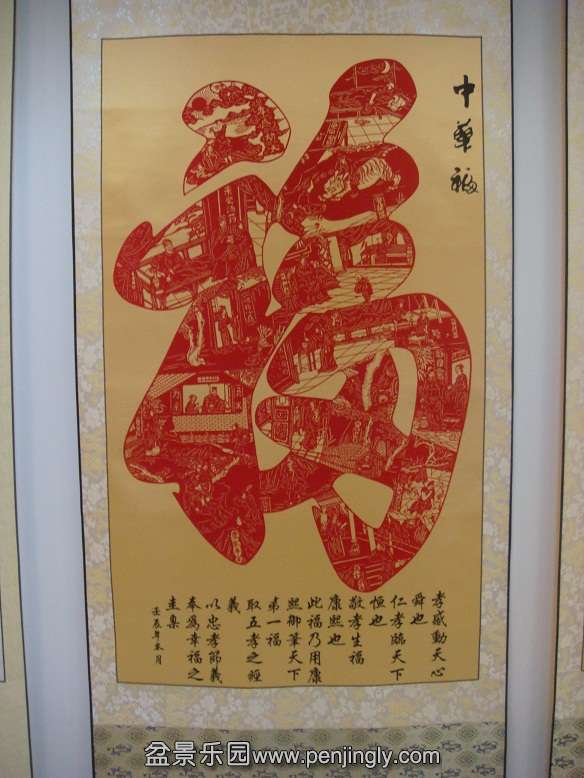 中華福
福
孝感動天心
舜也
仁孝臨天下
恒也
敬孝生福
康熙也
此福乃用康
熙御筆天下
弟一福
取五孝之經
義
以忠孝節義
奉爲幸福之
圭臬
壬辰年 月
盆景乐园www.penjingly.com